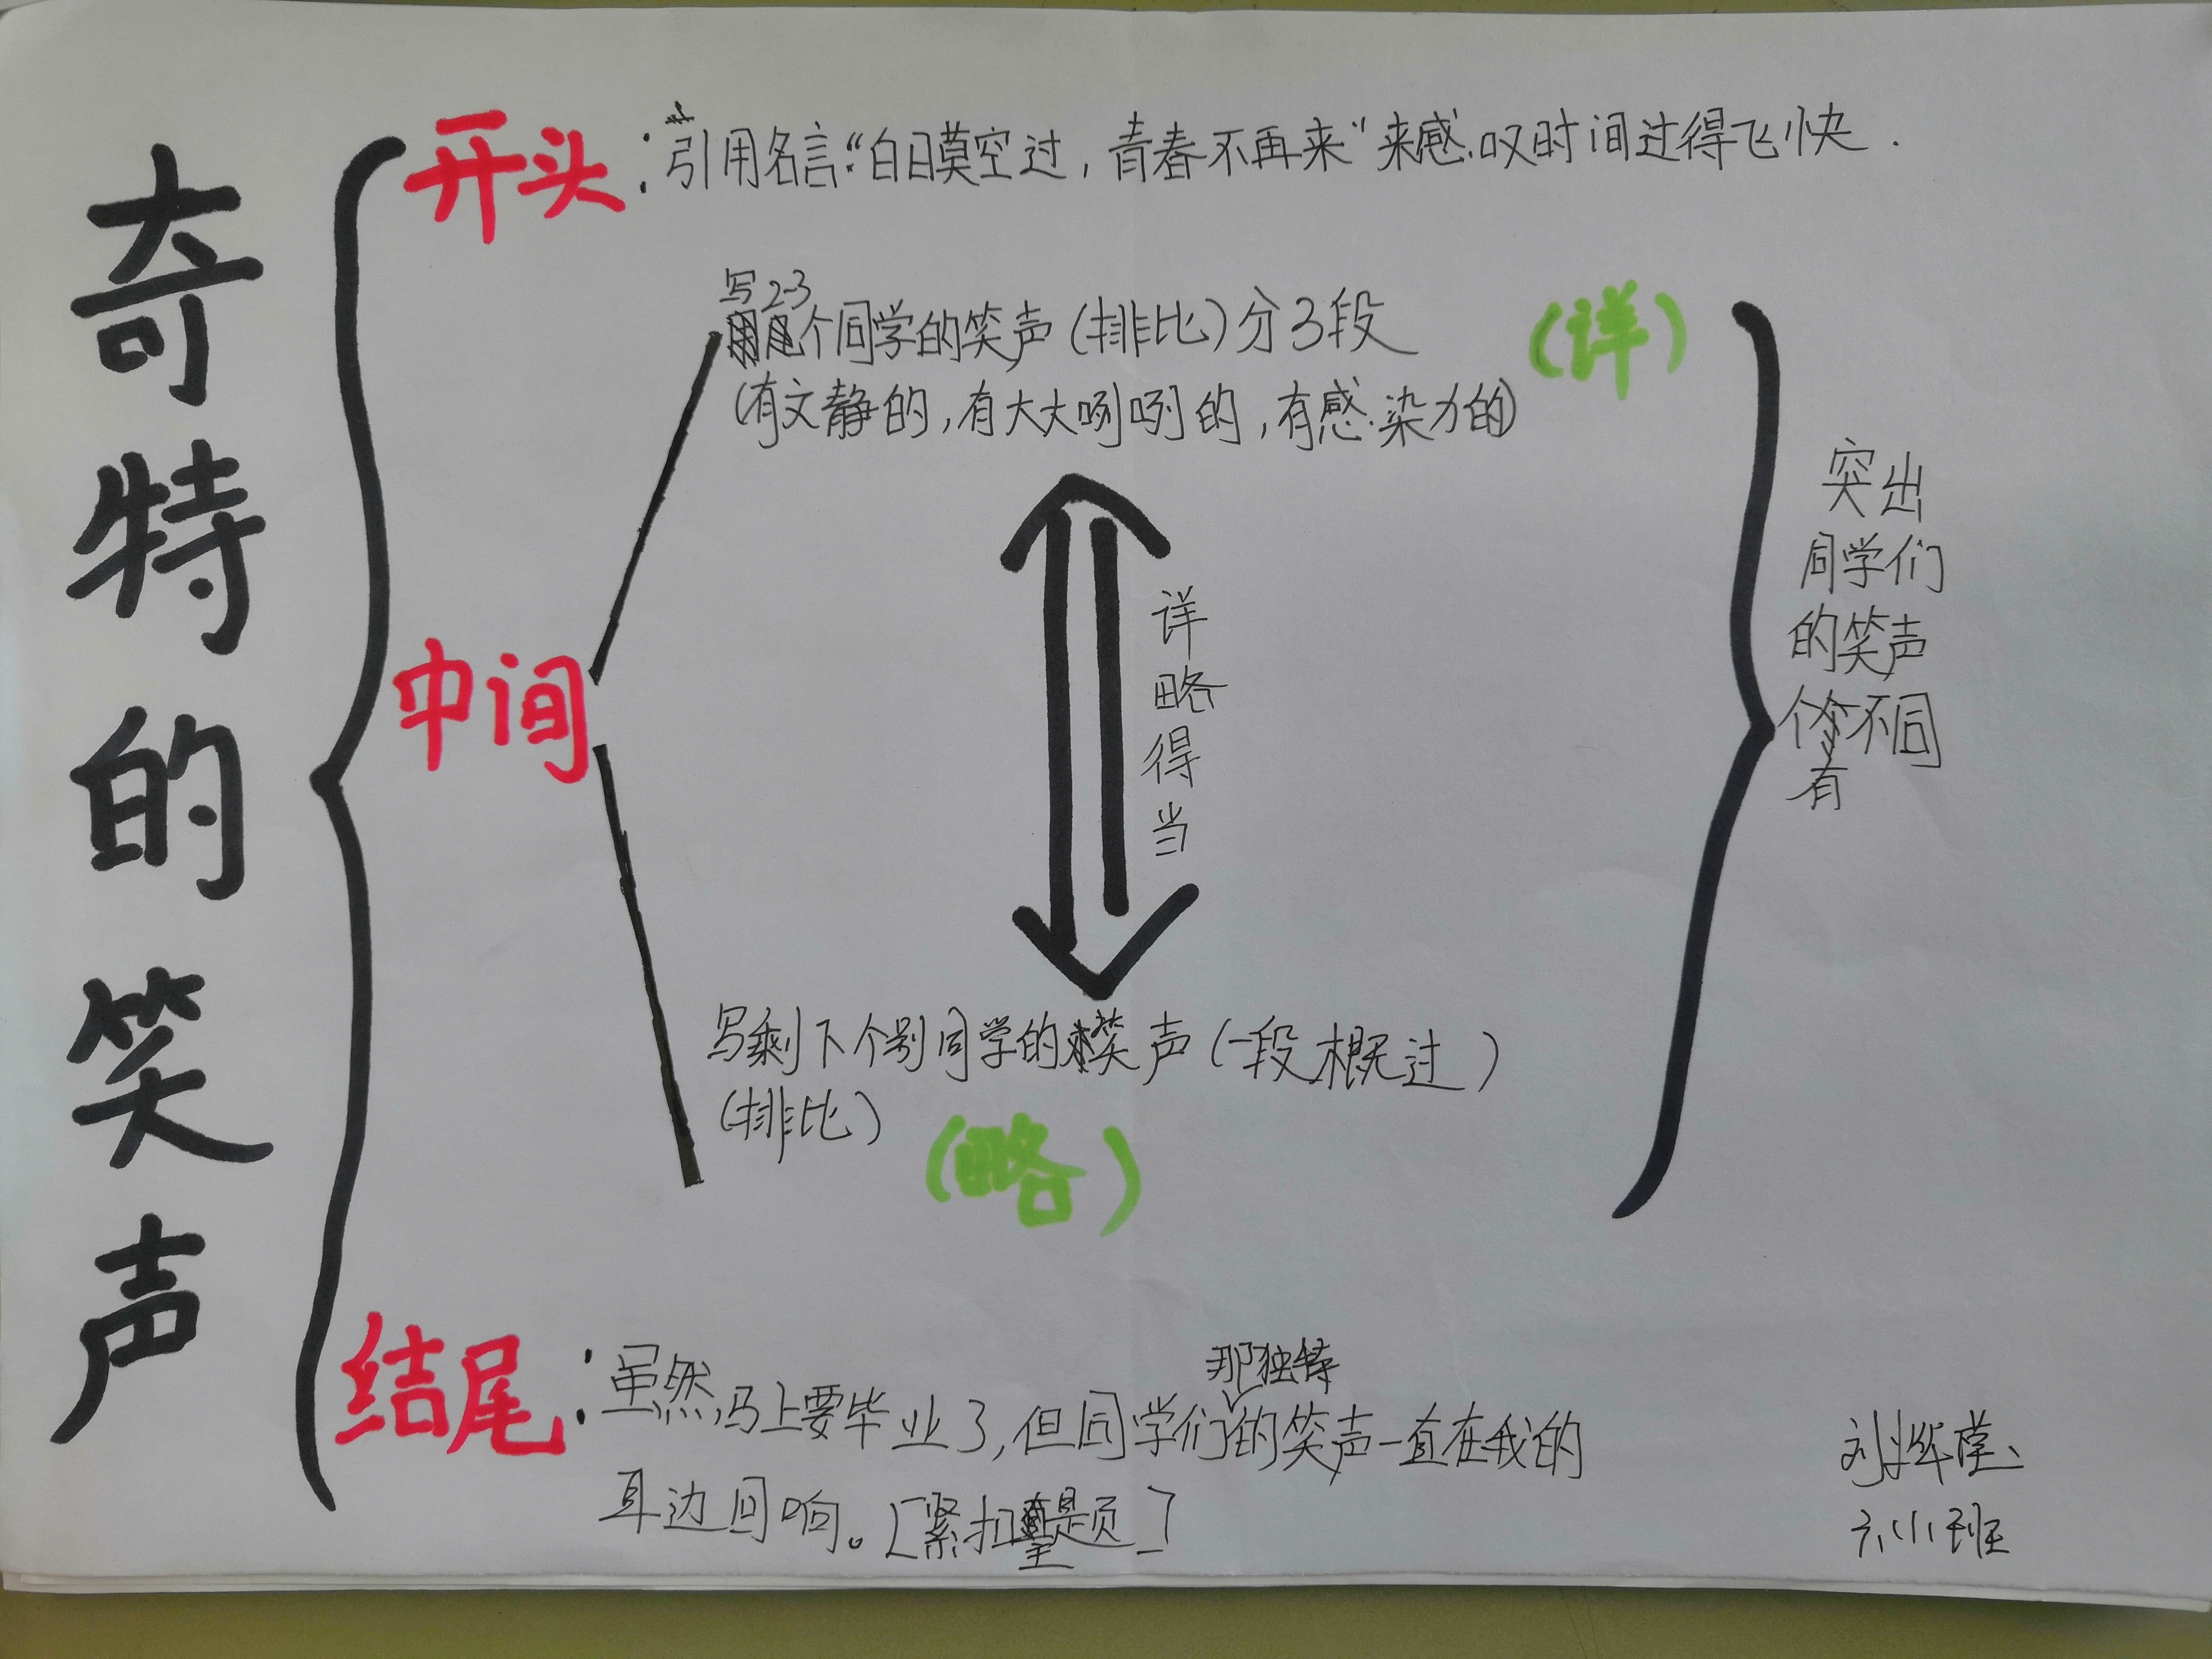 奇特的笑声
开头：引用名言“白日莫空过，青春不再来”来感叹时间过得飞快.
中间
写2-3个同学的笑声(排比)分3段
(有文静的,有大大咧咧的,有感染力的)
(详)
详略得当
写剩下个别同学的笑声(一段概过)
(排比)
(略)
突出
同学们
的笑声
个有不同
结尾：虽然,马上要毕业了,但同学们那独特的笑声一直在我的
耳边回响。[紧扣主题]
六(1)班